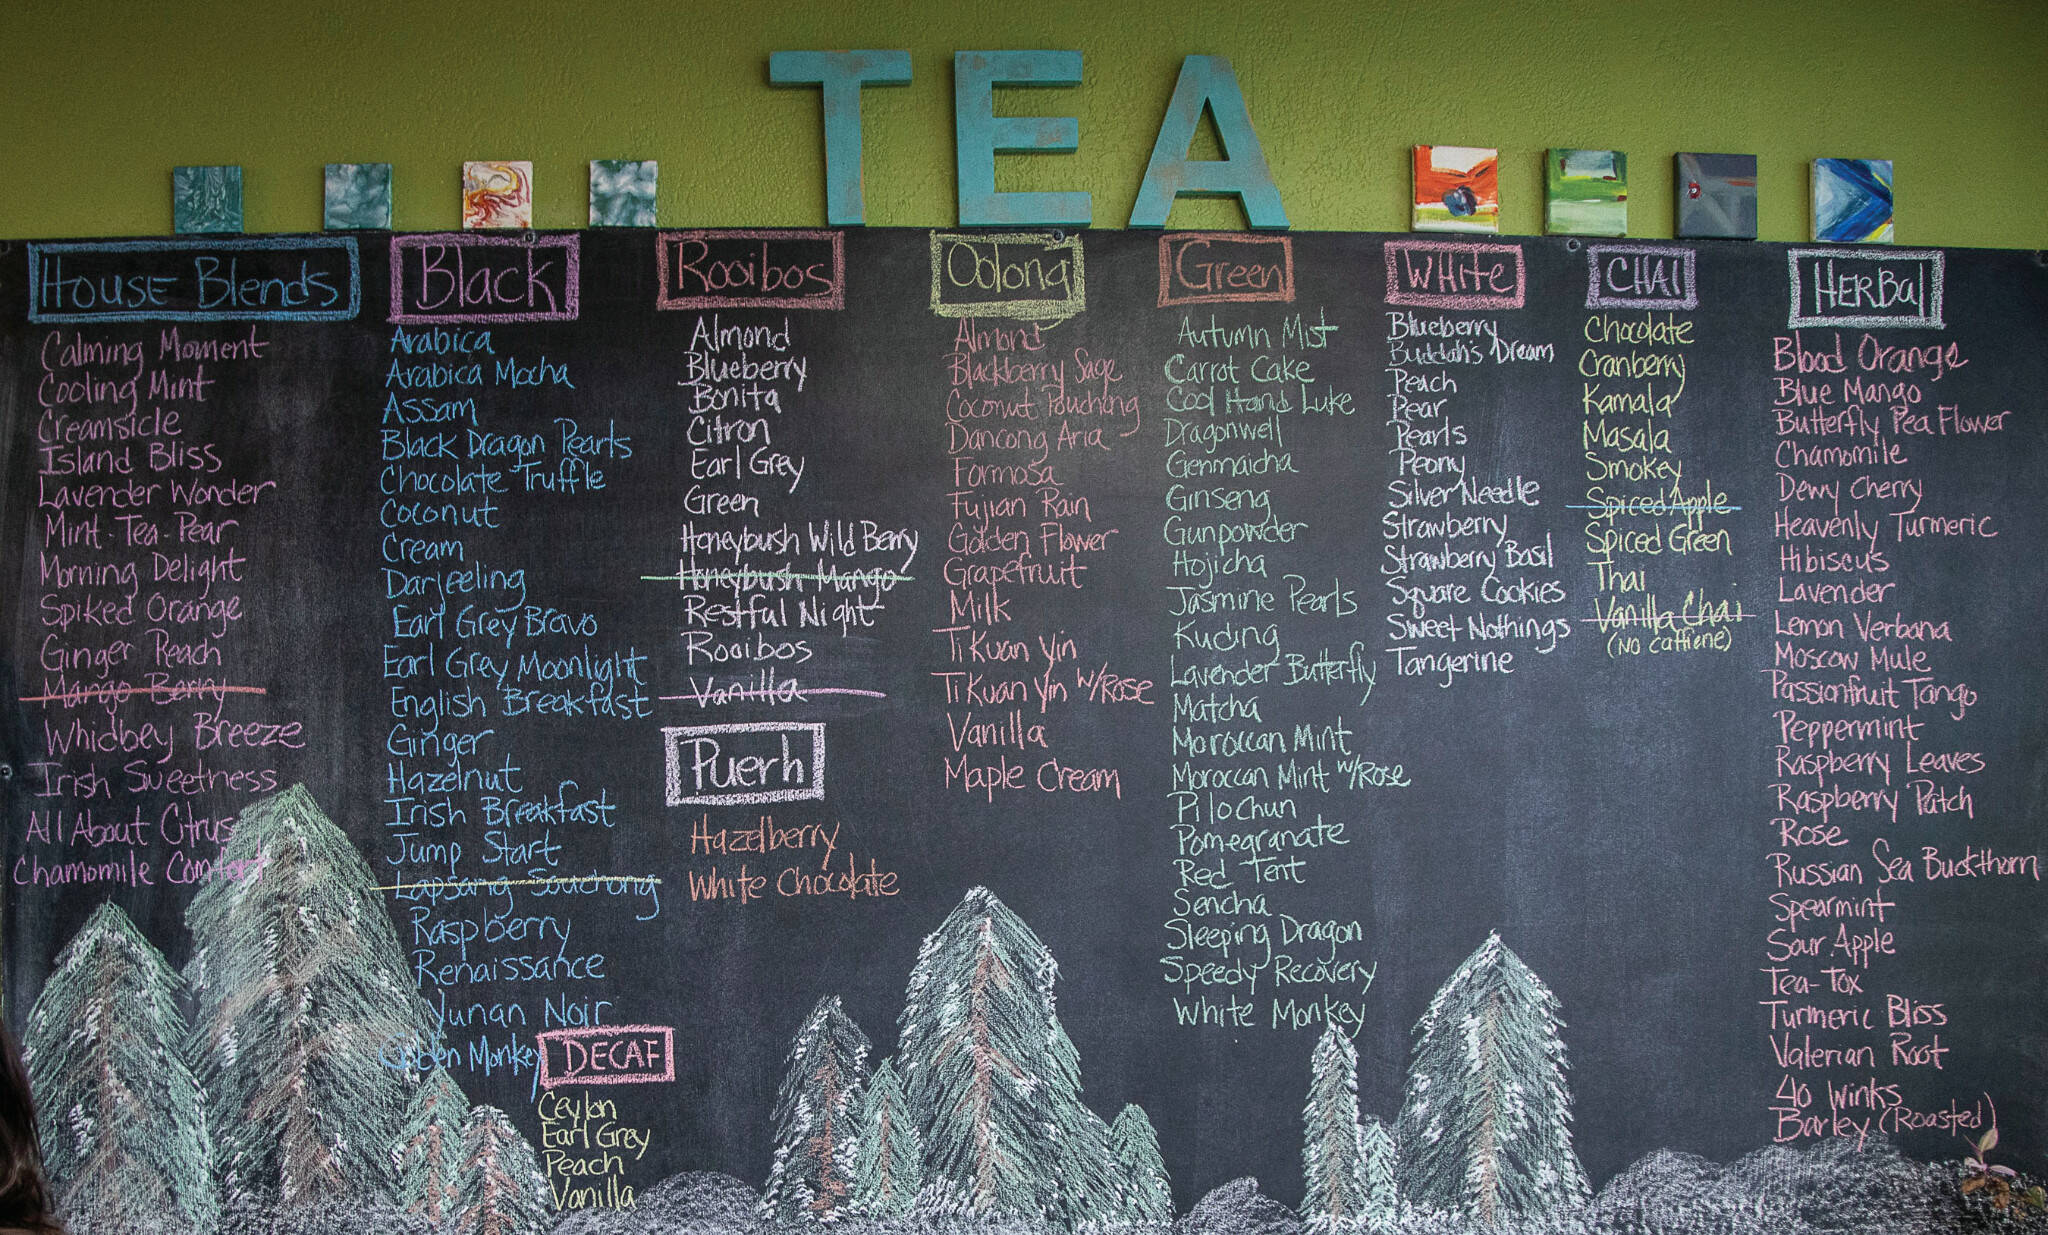 TEA
House Blends
Calming Moment
Cooling Mint
Creamsicle
Island Bliss
Lavender Wonder
Mint-Tea-Pear
Morning Delight
Spiked Orange
Ginger Peach
Mango Berry
Whidbey Breeze
Irish Sweetness
All About Citrus
Chamomile Comfort
Black
Arabica
Arabica Mocha
Assam
Black Dragon Pearls
Chocolate Truffle
Coconut
Cream
Darjeeling
Earl Grey Bravo
Earl Grey Moonlight
English Breakfast
Ginger
Hazelnut
Irish Breakfast
Jump Start
Lapsang Souchong
Raspberry
Renaissance
Yunan Noir
Golden Monkey
DECAF
Ceylon
Earl Grey
Peach
Vanilla
Rooibos
Almond
Blueberry
Bonita
Citron
Earl Grey
Green
Honeybush Wild Berry
Honeybush Mango
Restful Night
Rooibos
Vanilla
Puerh
Hazelberry
White Chocolate
Oolong
Almond
Blackberry Sage
Coconut Pouchong
Dancong Aria
Formosa
Fujian Rain
Golden Flower
Grapefruit
Milk
Ti Kuan Yin
Ti Kuan Yin w/Rose
Vanilla
Maple Cream
Green
Autumn Mist
Carrot Cake
Cool Hand Luke
Dragonwell
Genmaicha
Ginseng
Gunpowder
Hojicha
Jasmine Pearls
Kuding
Lavender Butterfly
Matcha
Moroccan Mint
Moroccan Mint w/Rose
Pi lo Chun
Pomegranate
Red Tent
Sencha
Sleeping Dragon
Speedy Recovery
White Monkey
WHite
Blueberry
Buddah's Dream
Peach
Pear
Pearls
Peony
Silver Needle
Strawberry
Strawberry Basil
Square Cookies
Sweet Nothings
Tangerine
CHAI
Chocolate
Cranberry
Kamala
Masala
Smokey
Spiced Apple
Spiced Green
Thai
Vanilla Chai
(No caffiene)
HERBal
Blood Orange
Blue Mango
Butterfly Pea Flower
Chamomile
Dewy Cherry
Heavenly Turmeric
Hibiscus
Lavender
Lemon Verbana
Moscow Mule
Passionfruit Tango
Peppermint
Raspberry Leaves
Raspberry Patch
Rose
Russian Sea Buckthorn
Spearmint
Sour Apple
Tea-Tox
Turmeric Bliss
Valerian Root
40 Winks
Barley (Roasted)